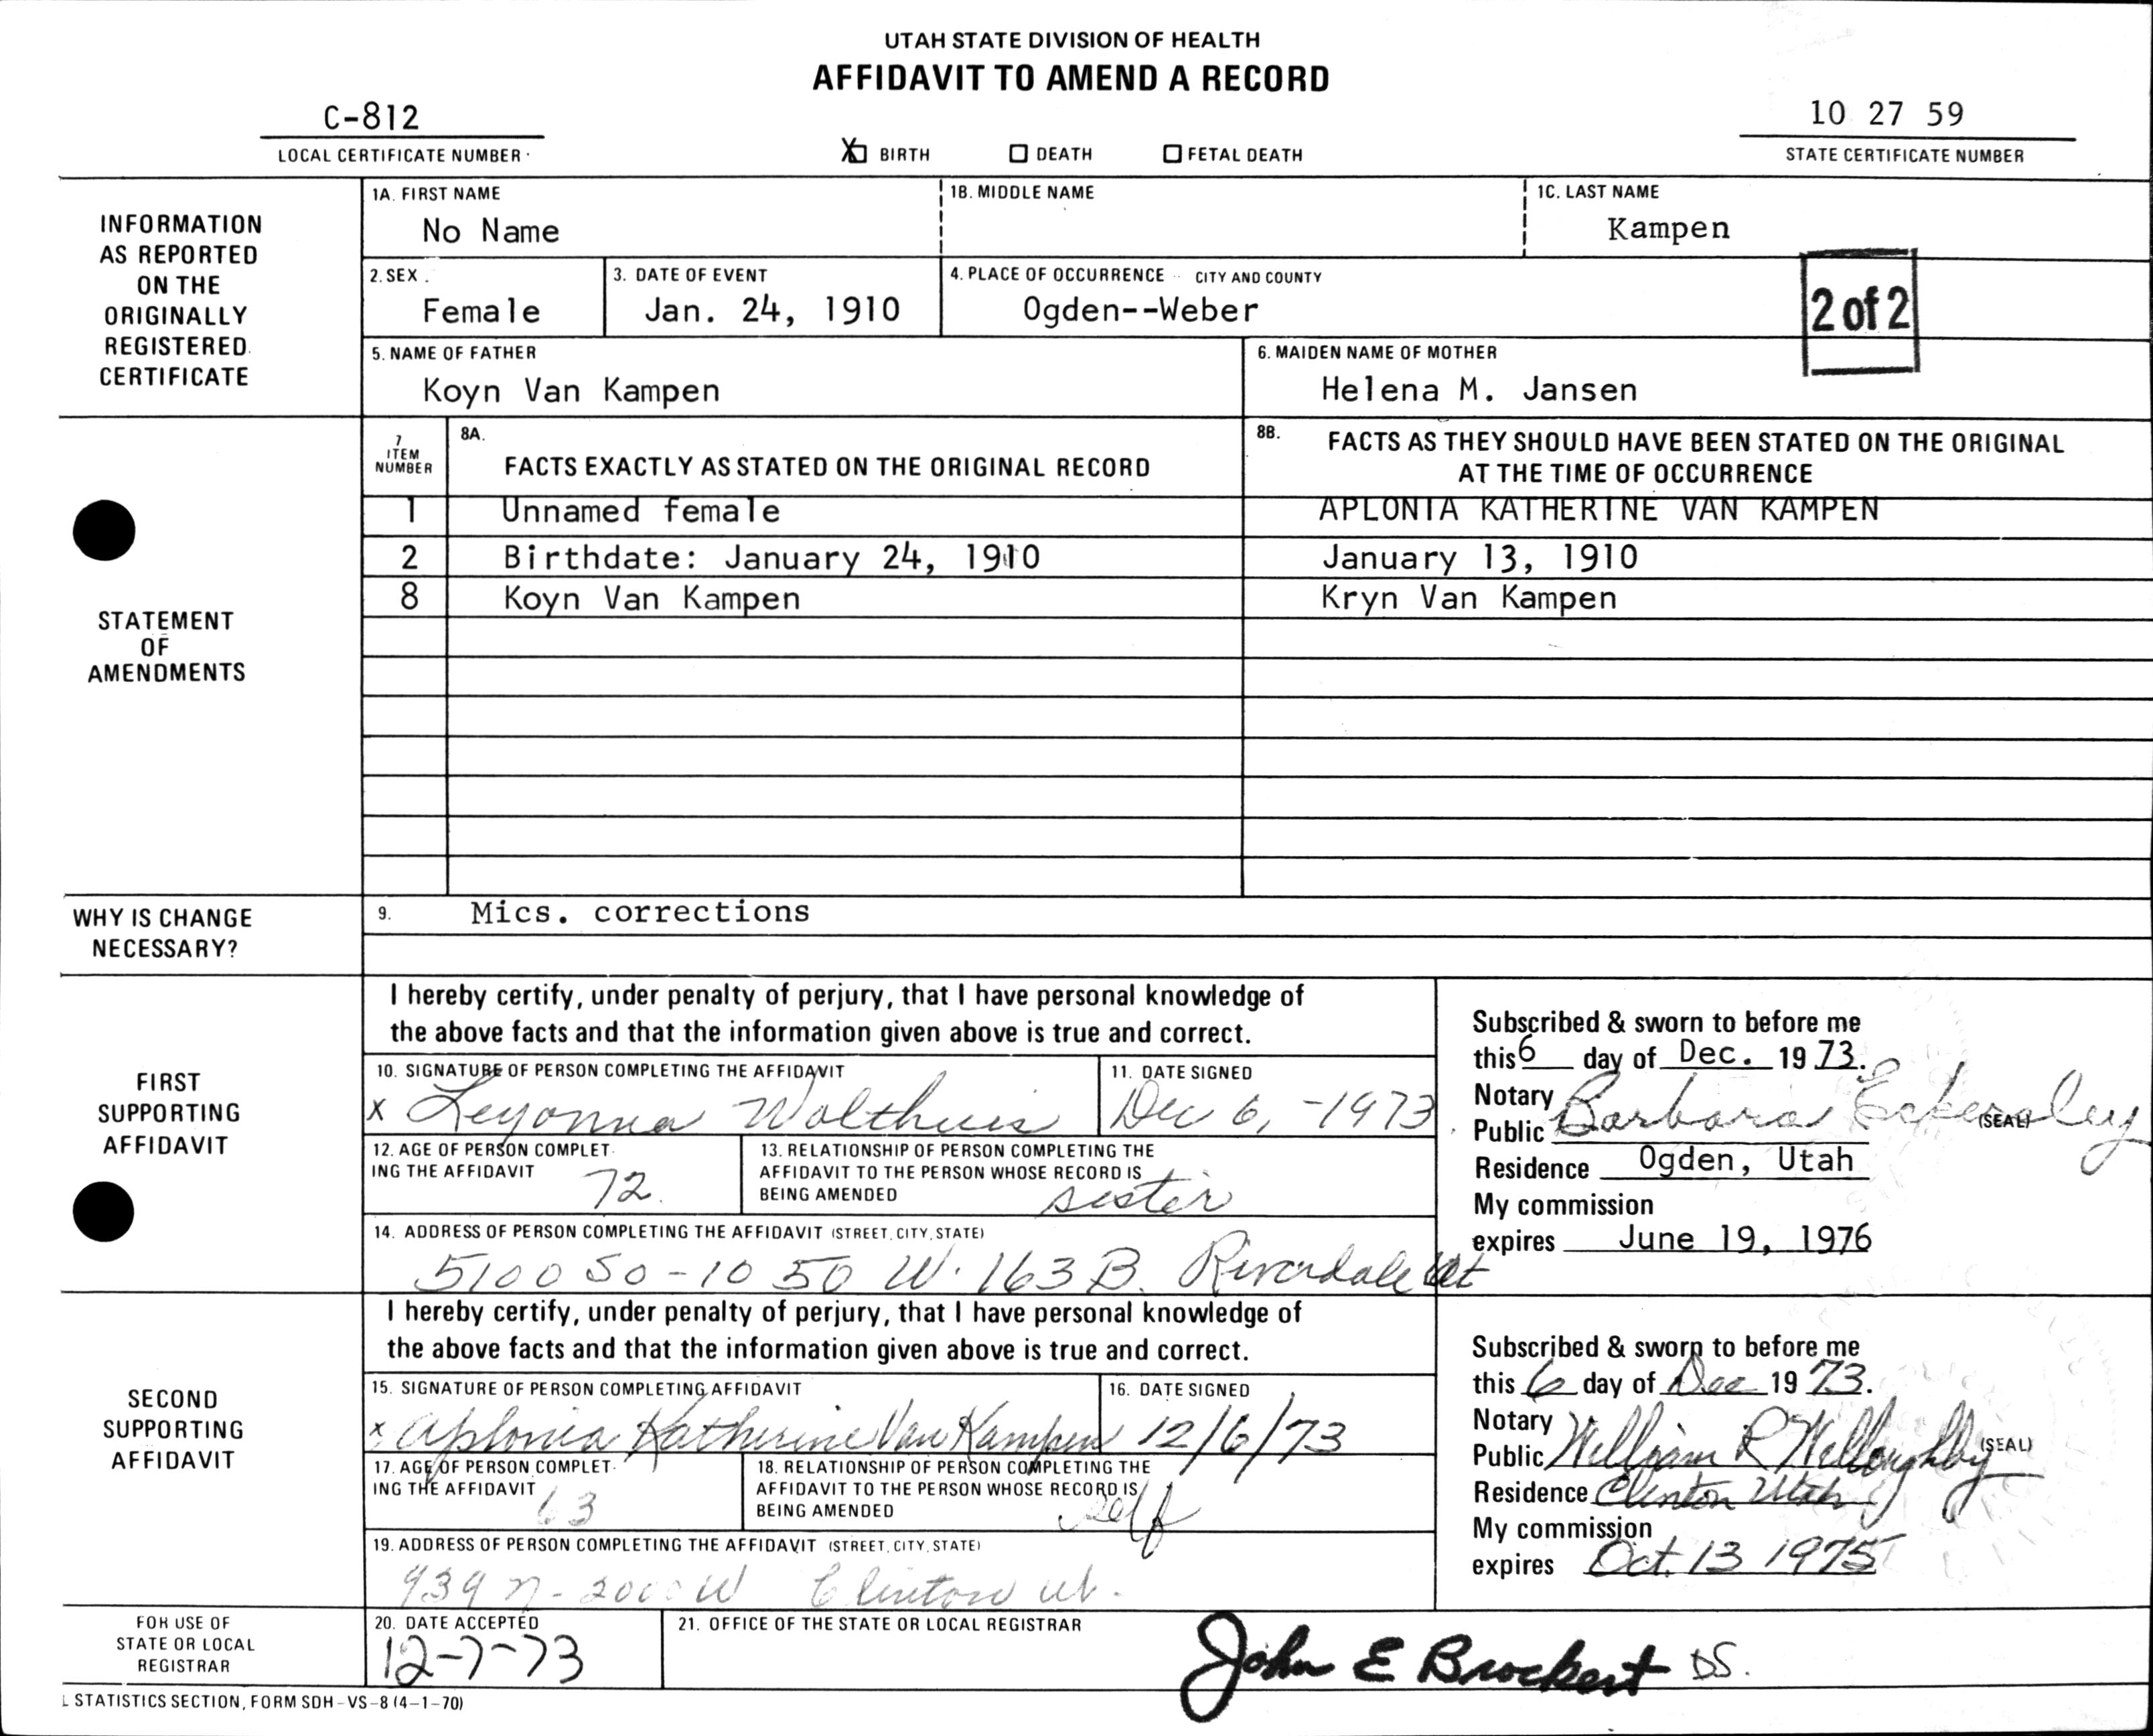 UTAH STATE DIVISION OF HEALTH
AFFIDAVIT TO AMEND A RECORD
C-812
LOCAL CERTIFICATE NUMBER
X BIRTH DEATH FETAL DEATH
10 27 59
STATE CERTIFICATE NUMBER
INFORMATION
AS REPORTED
ON THE
ORIGINALLY
REGISTERED
CERTIFICATE
1A. FIRST NAME
No Name
1B. MIDDLE NAME
1C. LAST NAME
Kampen
2. SEX
Female
3. DATE OF EVENT
Jan. 24, 1910
4. PLACE OF OCCURRENCE -- CITY AND COUNTY
Ogden--Weber
2 of 2
5. NAME OF FATHER
Koyn Van Kampen
6. MAIDEN NAME OF MOTHER
Helena M. Jansen
STATEMENT
OF
AMENDMENTS
7
ITEM
NUMBER
8A.
FACTS EXACTLY AS STATED ON THE ORIGINAL RECORD
8B.
FACTS AS THEY SHOULD HAVE BEEN STATED ON THE ORIGINAL
AT THE TIME OF OCCURRENCE
1 Unnamed female APLONIA KATHERINE VAN KAMPEN
2 Birthdate: January 24, 1910 January 13, 1910
8 Koyn Van Kampen Kryn Van Kampen
WHY IS CHANGE
NECESSARY?
9. Mics. corrections
FIRST
SUPPORTING
AFFIDAVIT
I hereby certify, under penalty of perjury, that I have personal knowledge of
the above facts and that the information given above is true and correct.
10. SIGNATURE OF PERSON COMPLETING THE AFFIDAVIT
x Leyonna Walthuis
11. DATE SIGNED
Dec 6, -1973
12. AGE OF PERSON COMPLET-
ING THE AFFIDAVIT
72.
13. RELATIONSHIP OF PERSON COMPLETING THE
AFFIDAVIT TO THE PERSON WHOSE RECORD IS
BEING AMENDED
sister
14. ADDRESS OF PERSON COMPLETING THE AFFIDAVIT (STREET, CITY, STATE)
5100 So - 10 50 W. 163 B. Riverdale Ut
Subscribed & sworn to before me
this 6 day of Dec. 19 73.
Notary
Public Barbara Eckersley (SEAL)
Residence Ogden, Utah
My commission
expires June 19, 1976
SECOND
SUPPORTING
AFFIDAVIT
I hereby certify, under penalty of perjury, that I have personal knowledge of
the above facts and that the information given above is true and correct.
15. SIGNATURE OF PERSON COMPLETING AFFIDAVIT
x Aplonia Katherine Van Kampen
16. DATE SIGNED
12/6/73
17. AGE OF PERSON COMPLET-
ING THE AFFIDAVIT
63
18. RELATIONSHIP OF PERSON COMPLETING THE
AFFIDAVIT TO THE PERSON WHOSE RECORD IS
BEING AMENDED
self
19. ADDRESS OF PERSON COMPLETING THE AFFIDAVIT (STREET, CITY, STATE)
939 N - 2000 W Clinton Ut.
Subscribed & sworn to before me
this 6 day of Dec 19 73.
Notary
Public William R Willoughby (SEAL)
Residence Clinton Utah
My commission
expires Oct. 13 1975
FOR USE OF
STATE OR LOCAL
REGISTRAR
20. DATE ACCEPTED
12-7-73
21. OFFICE OF THE STATE OR LOCAL REGISTRAR
John E Brockert DS.
L STATISTICS SECTION, FORM SDH-VS-8 (4-1-70)